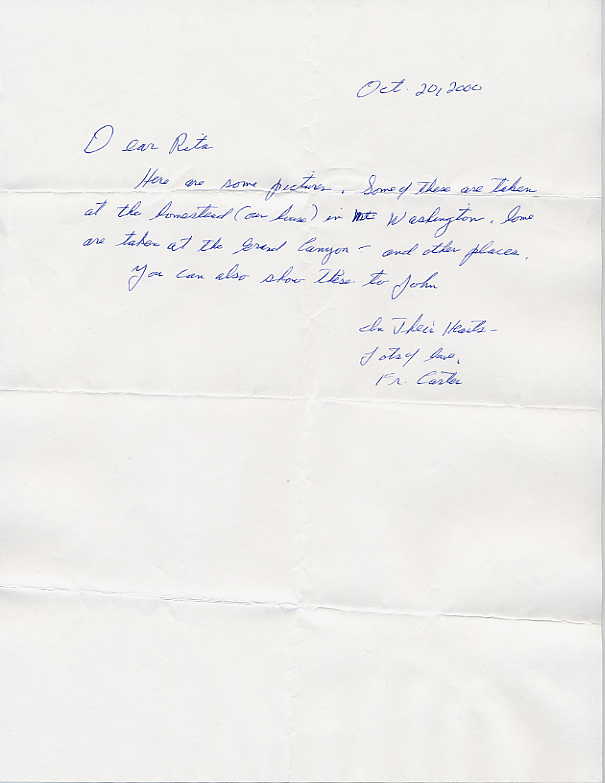 Oct. 20, 2000
Dear Rita
Here are some pictures. Some of these are taken
at the homestead (our house) in Mt Washington. Some
are taken at the Grand Canyon - and other places.
You can also show these to John
In Their Hearts -
Lots of love,
Fr. Carter